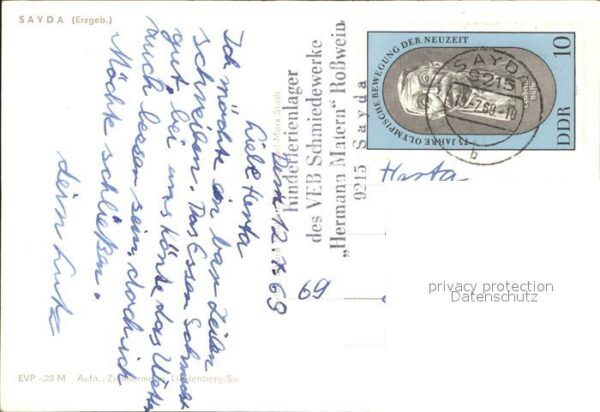 SAYDA (Erzgeb.)
den 12.7.69
Liebe Herta
Ich möchte ein bar Zeilen
schreiben. Das Essen Schmeckt
gut bei uns könte das Wetter
auch besser sein, doch ich
Möchte schließen.
dein Lutz
EVP -,20 M Aufn.:
Kinderferienlager
des VEB Schmiedewerke
„Hermann Matern“ Roßwein
9215 Sayda
75 JAHRE OLYMPISCHE BEWEGUNG DER NEUZEIT
DDR 10
SAYDA
9215
-7.69-10
b
Herta
69
privacy protection
Datenschutz